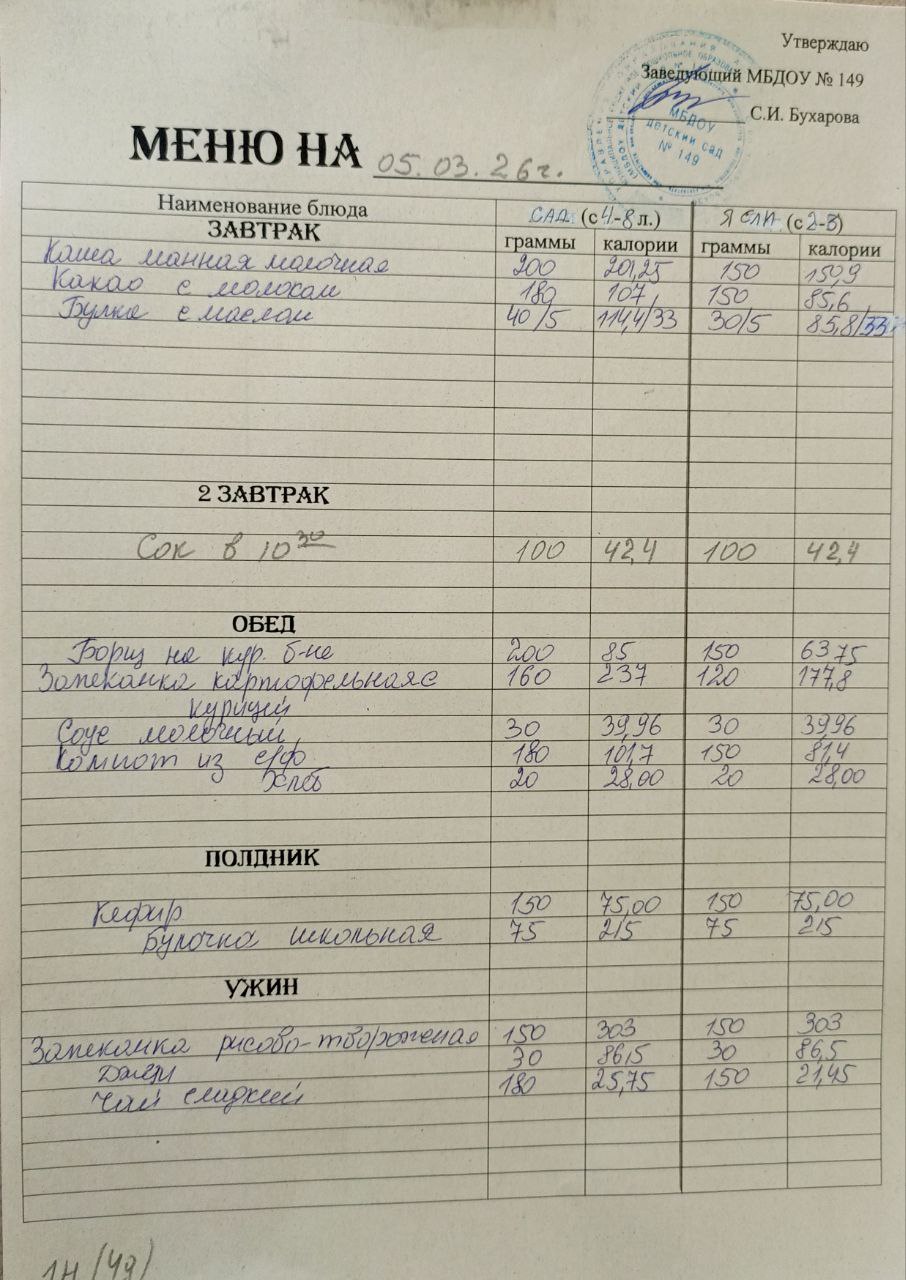 Утверждаю
Заведующий МБДОУ № 149
С.И. Бухарова
МБДОУ
детский сад
№ 149
МЕНЮ НА 05.03.26г.
Наименование блюда САД (с 4-8 л.) ЯСЛИ (с 2-3)
ЗАВТРАК граммы калории граммы калории
Каша манная молочная 200 201,25 150 150,9
Какао с молоком 180 107, 150 85,6
Булка с маслом 40/5 114,4/33 30/5 85,8/33
2 ЗАВТРАК
Сок в 10 30 100 42,4 100 42,4
ОБЕД
Борщ на кур. б-не 200 85 150 63 75
Запеканка картофельная с 160 237 120 177,8
курицей
Соус молочный 30 39,96 30 39,96
Компот из с/ф 180 101,7 150 81,4
Хлеб 20 28,00 20 28,00
ПОЛДНИК
Кефир 150 75,00 150 75,00
Булочка школьная 75 215 75 215
УЖИН
Запеканка рисово-творожная 150 303 150 303
30 86,5 30 86,5
Чай сладкий 180 25,75 150 21,45
14 (49)